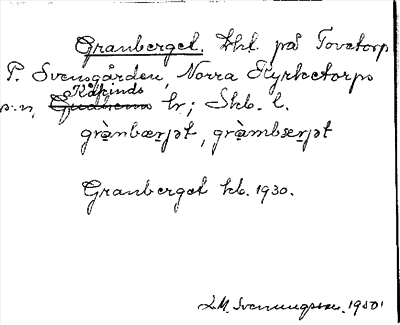 Granberget. Lht. på Tovatorp
P. Svensgården, Norra Kyrketorps
s:n, Kåkinds hr; Skb. l.
grànbærjət, gràmbærjət
Granberget hb. 1930.
L.M. Svenungsson. 1950